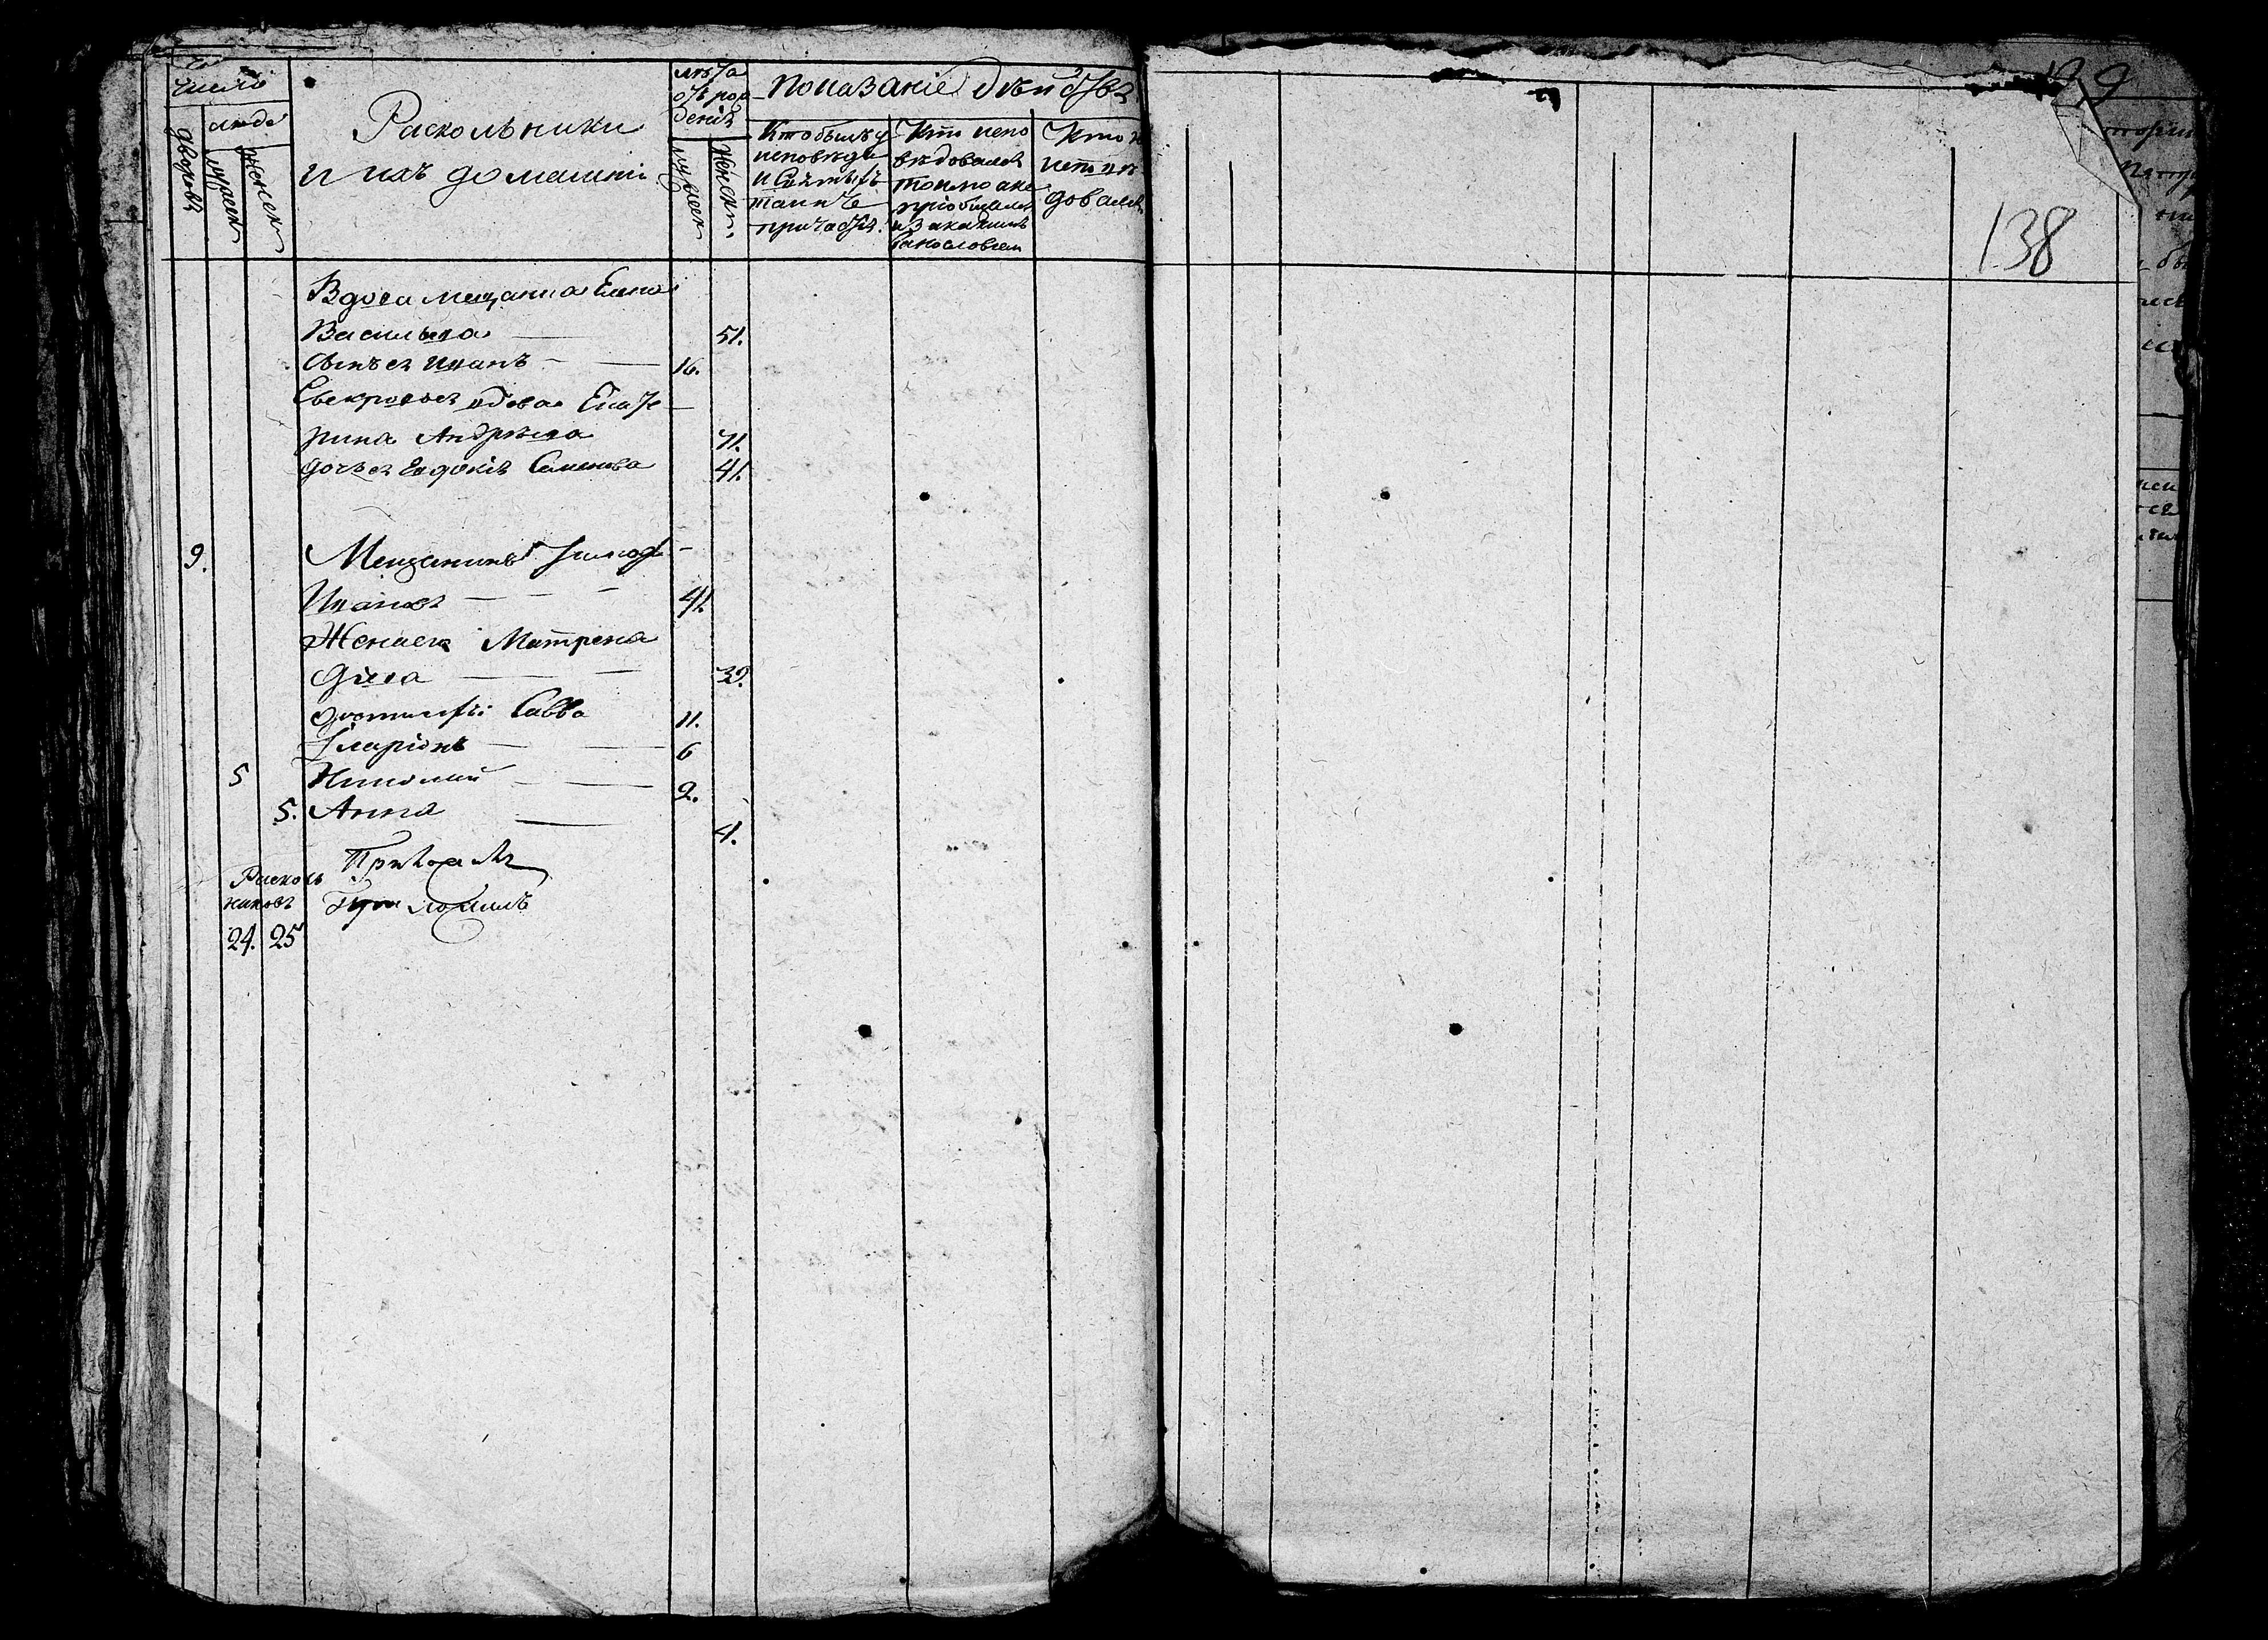 число
дворовъ
людей
мужеск
женск
Раскольники
и ихъ домашнiе
лѣта
отъ рож
денiя
мужеск
женск.
Показанiе дѣйства
Кто былъ у
исповѣди
и Святыхъ
таинъ
причастiя.
Кто испо
вѣдовался
токмо а не
прiобщался
и за какимъ
винословiем
Кто не
испові
довался
138
Вдова мещанка Елена
Васильева 51.
Сынъ ея Иванъ 16.
Свекровь ея вдова Екате
рина Андрѣева 71.
дочь ея Евдокiя Семенова 41.
9. Мещанинъ Тимоф
Ивановъ 41.
Жена его Матрена
39.
Савва 11.
Iларiонъ 6
5 Николай 2.
5. Анна 4.
Расколь
никовъ
24. 25